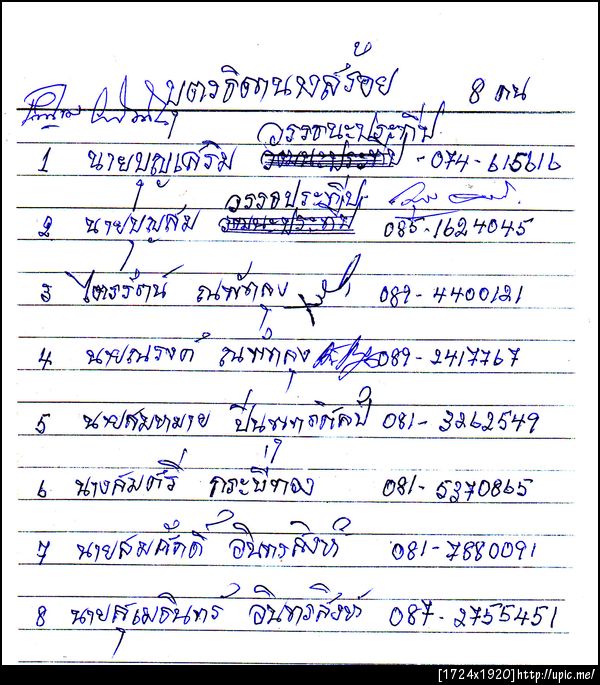 บุตรธิดานางสร้อย 8 คน
วรรธนะประทีป
1 นายบุญเสริม - 074-615616
วรรธประทีป
2 นายบุญสม 085-1624045
3 ไตรรัตน์ ณพัทลุง 089-4400121
4 นายณรงค์ ณพัทลุง 089-2417767
5 นายสมหมาย 081-3262549
6 นางสมศรี 081-5370865
7 นายสมศักดิ์ อินทรสิงห์ 081-7880091
8 นายสุเมธินทร์ อินทรสิงห์ 087-2755451
[1724x1920]http://upic.me/